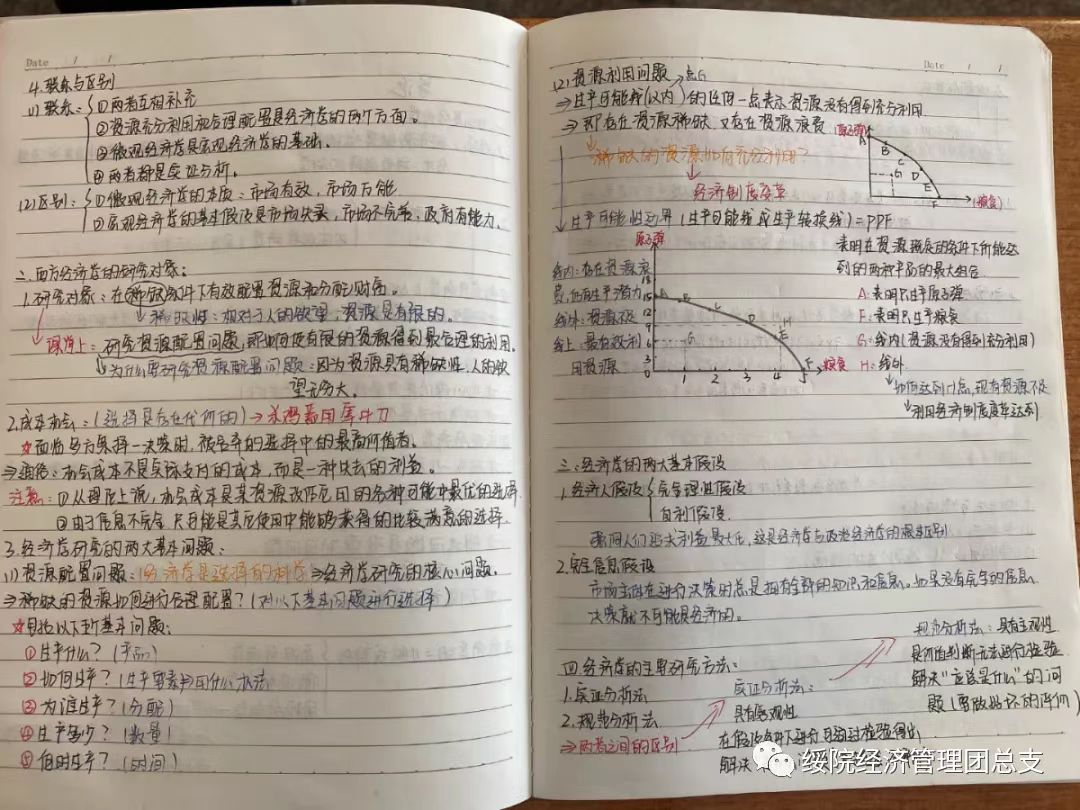 Date / /
4.联系与区别
(1)联系:①两者互相补充
②资源充分利用和合理配置是经济学的两个方面。
③微观经济学是宏观经济学的基础。
④两者都是实证分析。
(2)区别:①微观经济学的本质:市场有效,市场万能
②宏观经济学的基本假设是市场失灵,市场不完善,政府有能力。
二.西方经济学的研究对象:
1.研究对象:在稀缺条件下有效配置资源和分配财富。
稀缺性:相对于人的欲望,资源是有限的。
课堂上:研究资源配置问题,即如何使有限的资源得到最合理的利用。
为什么要研究资源配置问题:因为资源具有稀缺性,人的欲
望无穷大。
2.机会成本:(选择是存在代价的)→杀鸡焉用宰牛刀
☆面临多方案择一决策时,被舍弃的选择中的最高价值者。
⇒通俗:机会成本不是实际支付的成本,而是一种失去的利益。
注意:①从理论上说,机会成本是某资源改作它用的各种可能中最优的选择
②由于信息不完全,只可能是其它使用中能够获得的比较满意的选择.
3.经济学研究的两大基本问题:
(1)资源配置问题:经济学是选择的科学⇒经济学研究的核心问题.
⇒稀缺的资源如何进行合理配置?(对以下基本问题进行选择)
☆包括以下5个基本问题:
①生产什么?(产品)
②如何生产?(生产要素⇒用什么办法)
③为谁生产?(分配)
④生产多少?(数量)
⑤何时生产?(时间)
Date / /
(2)资源利用问题 点G
⇒生产可能线(以内)的任何一点表示资源没有得到充分利用
⇒即存在资源稀缺,又存在资源浪费
稀缺的资源如何充分利用?
经济制度变革
原子弹
A
B
C
G D
E
F (粮食)
生产可能性边界(生产可能线或生产转换线)=PPF
表明在资源既定的条件下所能达
到的两种产品的最大组合
A:表明只生产原子弹
F:表明只生产粮食
G:线内(资源没有得到充分利用)
H:线外
如何达到H点,现有资源不足
利用经济制度变革达到
线内:存在资源浪
费,仍有生产潜力
线外:资源不足
线上:最有效利
用资源
原子弹
18
15 A
12
9
6
3
0 1 2 3 4 5
B C D H E G F 粮食
三.经济学的两大基本假设
1.经济人假设 完全理性假设
自利假设
影响人们追求利益最大化,这是经济学与政治经济学的根本区别
2.完全信息假设
市场主体在进行决策时总是拥有全部的知识和信息。如果没有完全的信息,
决策就不可能是经济的。
四.经济学的主要研究方法:
1.实证分析法
2.规范分析法
⇒两者之间的区别
实证分析法:
具有客观性
在假设条件下进行
解决
规范分析法:具有主观性
是价值判断无法进行检验
解决“应该是什么”的问
题(要做出好坏的评价)
绥院经济管理团总支